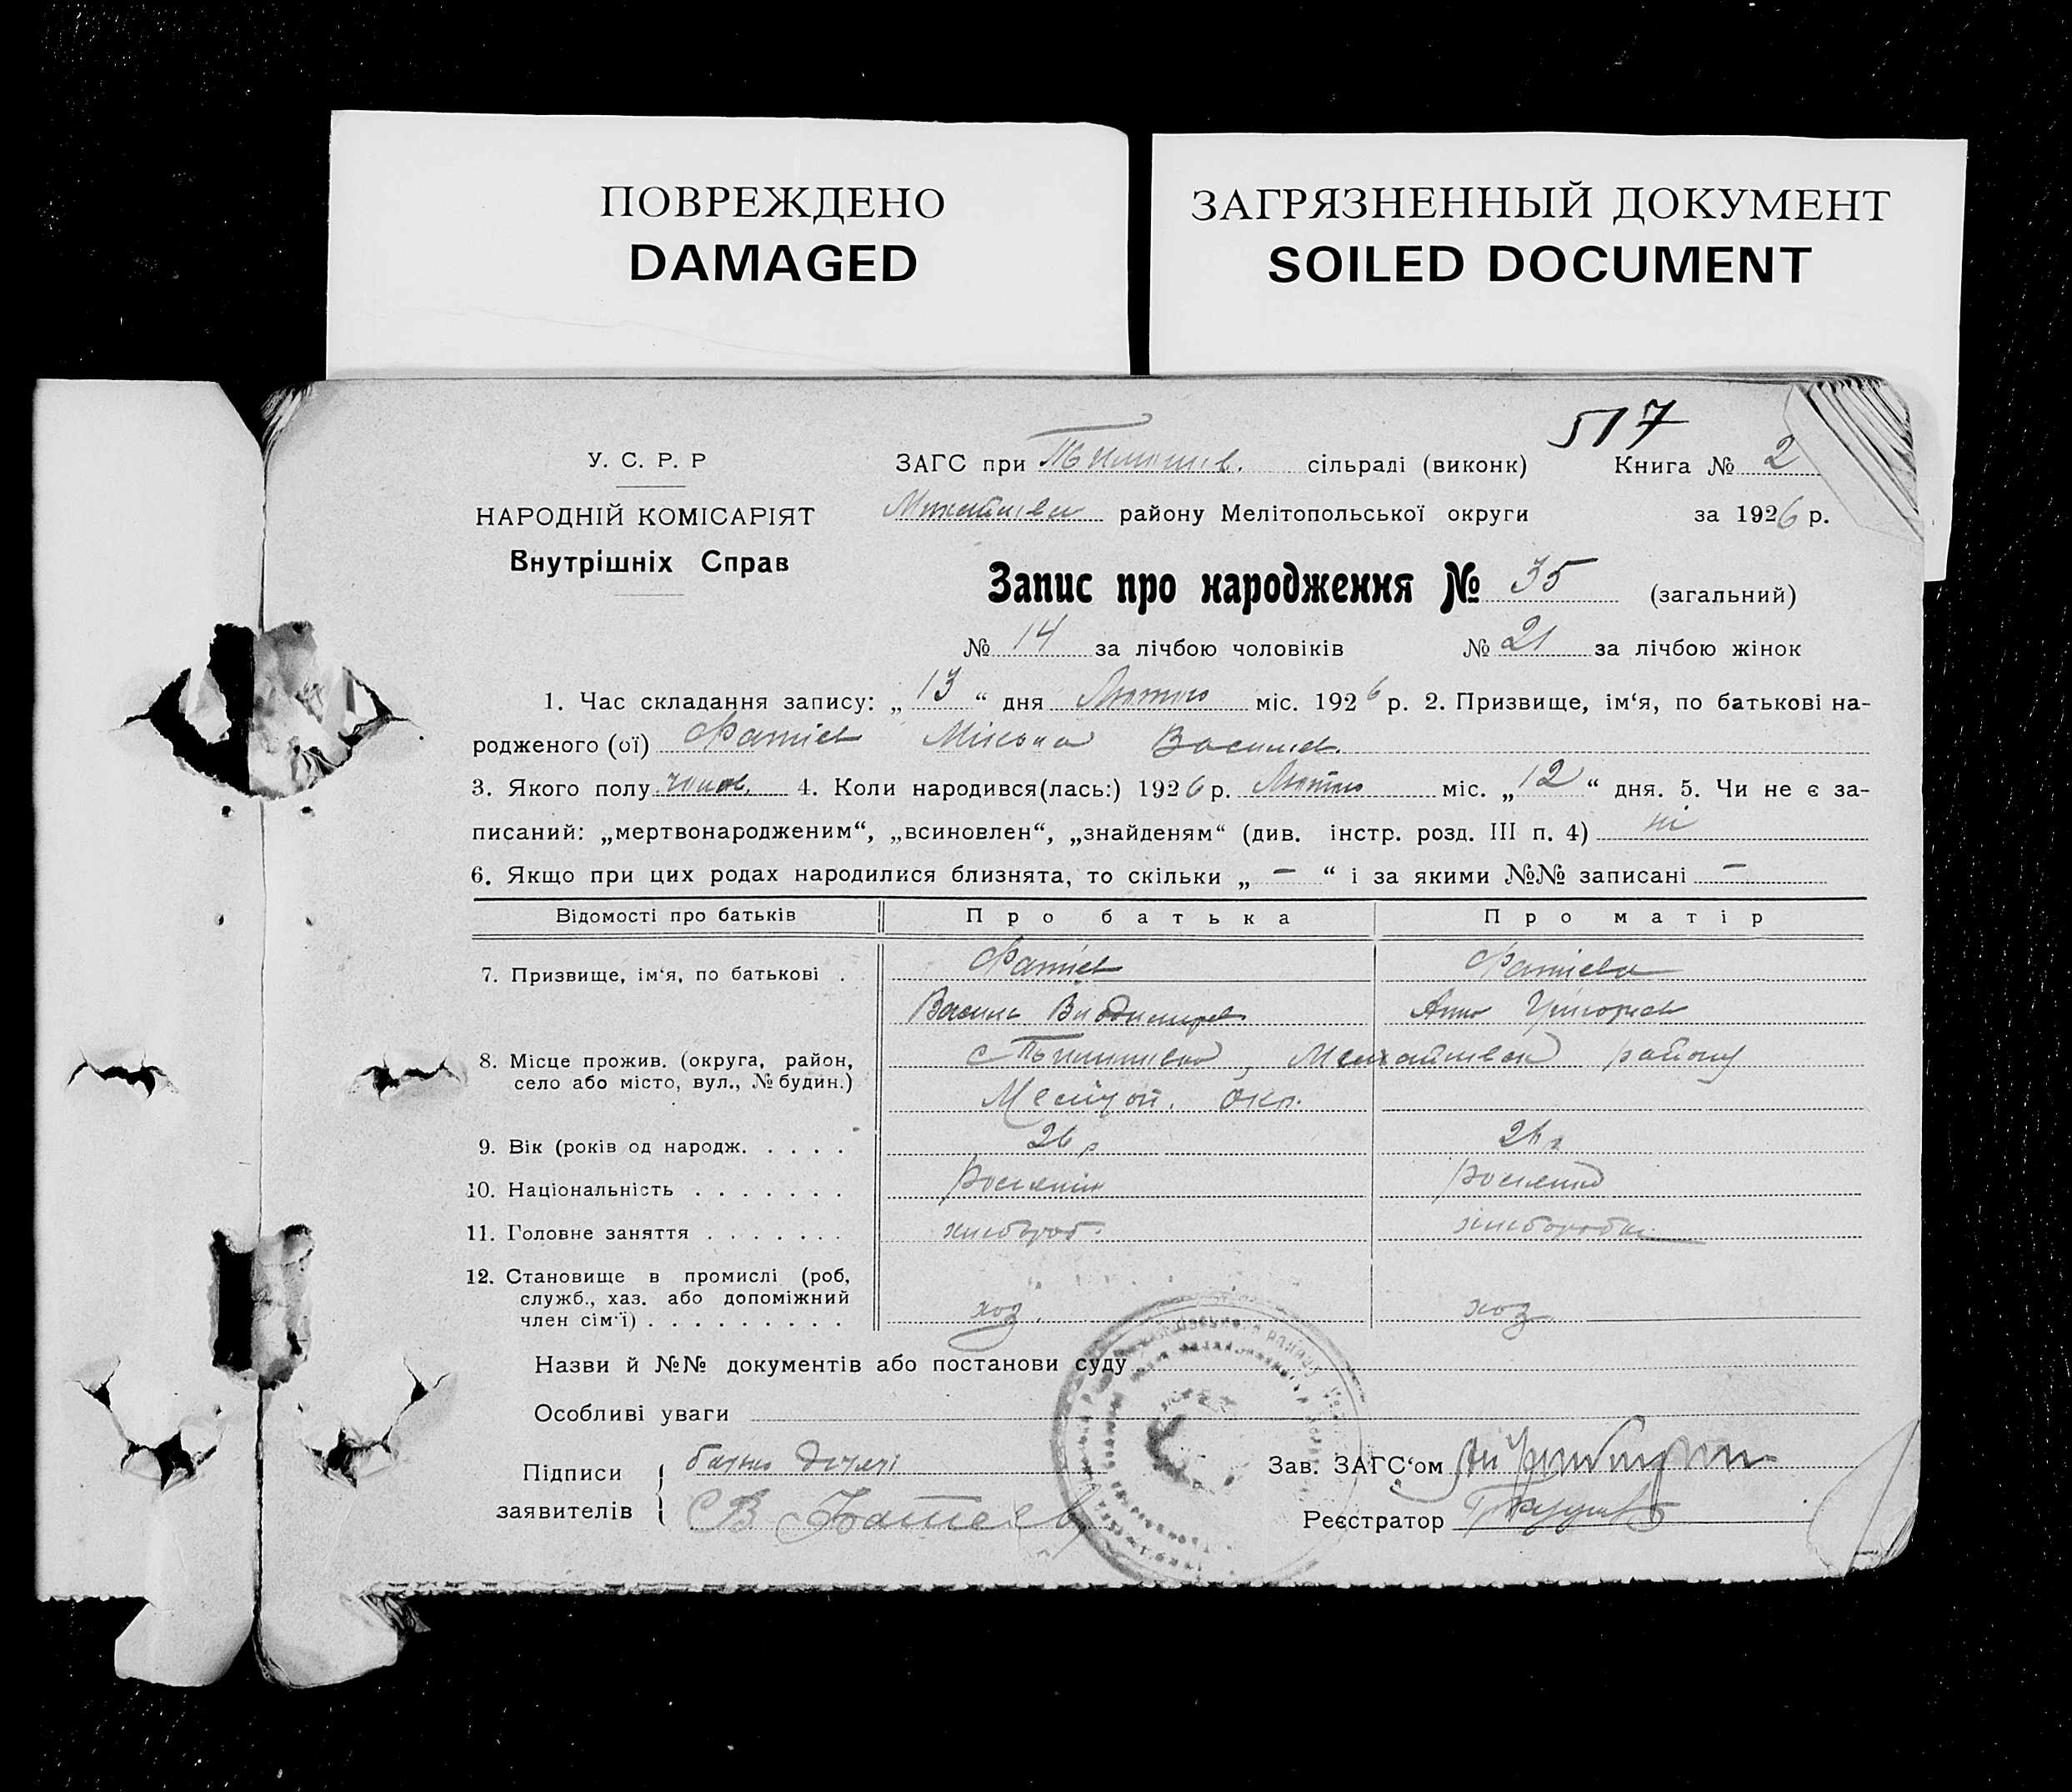 ПОВРЕЖДЕНО
DAMAGED
ЗАГРЯЗНЕННЫЙ ДОКУМЕНТ
SOILED DOCUMENT
517
У. С. Р. Р
НАРОДНІЙ КОМІСАРІЯТ
Внутрішніх Справ
ЗАГС при сільраді (виконк) Книга № 2
району Мелітопольської округи за 1926 р.
Запис про народження № 35 (загальний)
№ 14 за лічбою чоловіків № 21 за лічбою жінок
1. Час складання запису: „ 13 “ дня Лютого міс. 1926 р. 2. Призвище, ім‘я, по батькові на-
родженого (ої) Фатієв Микола Василев.
3. Якого полу чолов. 4. Коли народився(лась:) 1926 р. Лютого міс. „ 12 “ дня. 5. Чи не є за-
писаний: „мертвонародженим“, „всиновлен“, „знайденям“ (див. інстр. розд. III п. 4) ні
6. Якщо при цих родах народилися близнята, то скільки „ – “ і за якими №№ записані –
Відомості про батьків Про батька Про матір
7. Призвище, ім‘я, по батькові . Фатієв Фатієва
Василь Анна Григорієв
8. Місце прожив. (округа, район,
село або місто, вул., № будин.)
с. району
окр.
9. Вік (років од народж. . . . . 26 р
10. Національність . . . . . . .
11. Головне заняття . . . . . . . хлібороб. хліборобка
12. Становище в промислі (роб,
служб., хаз. або допоміжний
член сім‘ї) . . . . . . . . . хоз. хоз.
Назви й №№ документів або постанови суду
Особливі уваги
Підписи
заявителів
батько
Зав. ЗАГС‘ом
В Фатеев
Реєстратор